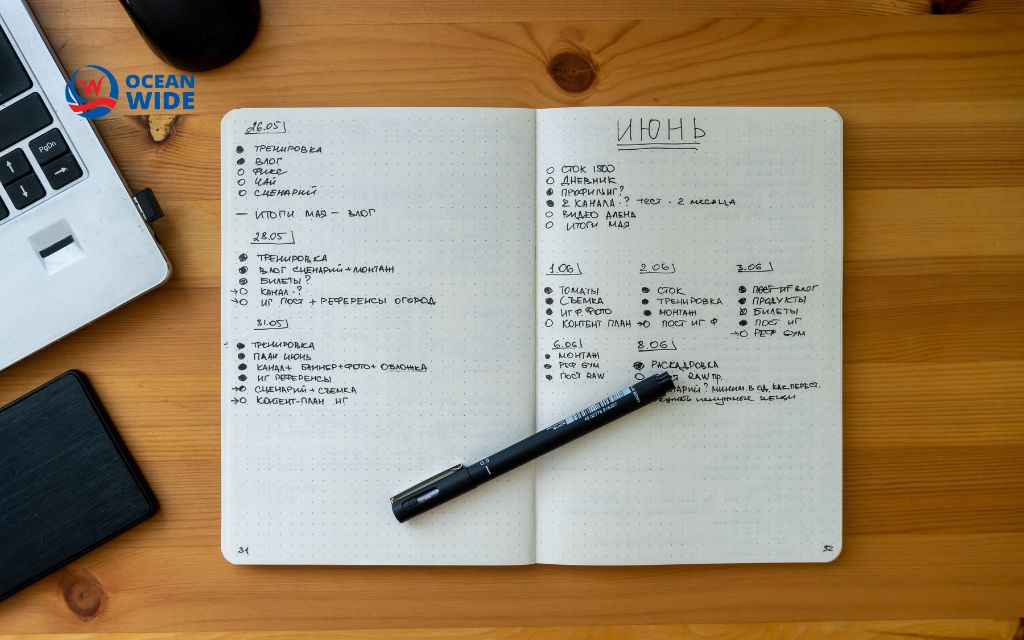 OCEAN
WIDE
PgDn
26.05
ТРЕНИРОВКА
ВЛОГ
ФИКС
ЧАЙ
СЦЕНАРИЙ
— ИТОГИ МАЯ — ВЛОГ
28.05
ТРЕНИРОВКА
ВЛОГ СЦЕНАРИЙ+МОНТАЖ
БИЛЕТЫ?
КАНАЛ - ?
ИГ ПОСТ + РЕФЕРЕНСЫ ОГОРОД
31.05
ТРЕНИРОВКА
ПЛАН ИЮНЬ
КАНАЛ+ БАННЕР+ФОТО+ ОБЛОЖКА
ИГ РЕФЕРЕНСЫ
СЦЕНАРИЙ + СЪЕМКА
КОНТЕНТ-ПЛАН ИГ
31
ИЮНЬ
СТОК 1500
ДНЕВНИК
ПРОФИЛИНГ?
2 КАНАЛА - ? тест - 2 месяца
ВИДЕО АЛЕНА
ИТОГИ МАЯ
1.06
ТОМАТЫ
СЪЕМКА
ИГ Ф ФОТО
КОНТЕНТ ПЛАН
2.06
СТОК
ТРЕНИРОВКА
МОНТАЖ
ПОСТ ИГ Ф
3.06
ПОСТ ИГ ВЛОГ
ПРОДУКТЫ
БИЛЕТЫ
ПОСТ ИГ
РЕФ GYM
6.06
МОНТАЖ
РЕФ GYM
ПОСТ RAW
8.06
РАСКАДРОВКА
RAW пр.
? миним. в од. как перест.
ненужные вещи
0.5
32